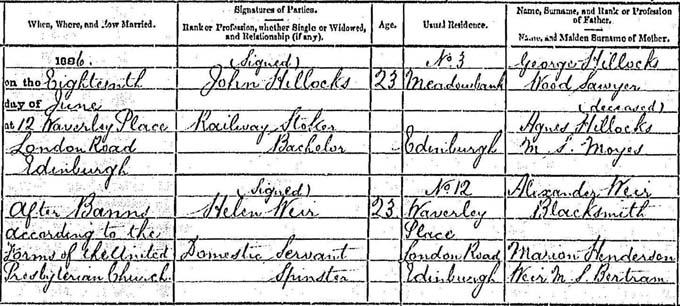 When, Where, and How Married.
Signatures of Parties.
Rank or Profession, whether Single or Widowed, and Relationship (if any).
Age.
Usual Residence.
Name, Surname, and Rank or Profession of Father.
Name, and Maiden Surname of Mother.
1886.
on the Eighteenth
day of June
at 12 Waverley Place
London Road
Edinburgh
After Banns
according to the
Forms of the United
Presbyterian Church.
(Signed)
John Hillocks
Railway Stoker
Bachelor
(Signed)
Helen Weir
Domestic Servant
Spinster
23
23
No 3
Meadowbank
Edinburgh
No 12
Waverley
Place
London Road
Edinburgh
George Hillocks
Wood Sawyer
(deceased)
Agnes Hillocks
M. S. Moyes
Alexander Weir
Blacksmith
Marion Henderson
Weir M. S. Bertram